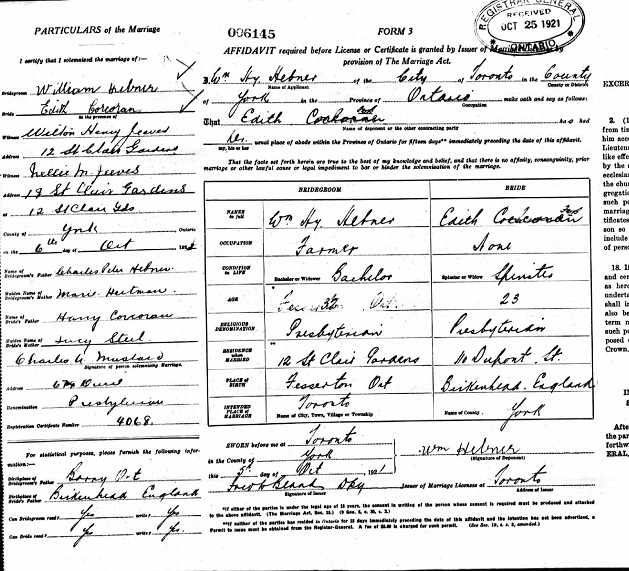 PARTICULARS of the Marriage
I certify that I solemnized the marriage of:
Bridegroom William Hebner
Bride Edith Corcoran
in the presence of
Witness Welton Henry Jeeves
Address 12 St Clair Gardens
Witness Nellie M. Jeeves
Address 12 St Clair Gardens
at 12 St Clair Gds
County of York Ontario
on the 6th day of Oct 192
Name of Bridegroom's Father Charles Peter Hebner
Maiden Name of Bridegroom's Mother Marie Hartman
Name of Bride's Father Harry Corcoran
Maiden Name of Bride's Mother Lucy Steel
Charles A. Mustard
Signature of person solemnizing Marriage
Address
Denomination Presbyterian
Registration Certificate Number 4068
For statistical purposes, please furnish the following information:
Birthplace of Bridegroom's Father Ont
Birthplace of Bride's Father Birkenhead England
Can Bridegroom read? Yes write? Yes
Can Bride read? Yes write? Yes
006145
FORM 3
REGISTRAR GENERAL
RECEIVED
OCT 25 1921
ONTARIO
AFFIDAVIT required before License or Certificate is granted by Issuer of Marriage by
provision of The Marriage Act.
I, Wm Hy Hebner of the City of Toronto in the County
Name of Applicant County or District
of York in the Province of Ontario make oath and say as follows:
Occupation
That Edith Corcoran has had
Name of deponent or the other contracting party
her usual place of abode within the Province of Ontario for fifteen days** immediately preceding the date of this affidavit.
my, his or her
That the facts set forth herein are true to the best of my knowledge and belief, and that there is no affinity, consanguinity, prior
marriage or other lawful cause or legal impediment to bar or hinder the solemnization of the marriage.
BRIDEGROOM BRIDE
NAMES in full Wm Hy Hebner Edith Corcoran
OCCUPATION Farmer None
CONDITION in LIFE Bachelor or Widower Bachelor Spinster or Widow Spinster
AGE 32 23
RELIGIOUS DENOMINATION Presbyterian Presbyterian
RESIDENCE when MARRIED 12 St Clair Gardens 110 Dupont St.
PLACE OF BIRTH Fesserton Ont Birkenhead. England
INTENDED PLACE of MARRIAGE Toronto York
Name of City, Town, Village or Township Name of County
SWORN before me at Toronto
in the County of York
this 5th day of Oct 1921
Wm Hebner
(Signature of Deponent)
Signature of Issuer
Issuer of Marriage Licenses at Toronto
Address of Issuer
*If either of the parties is under the legal age of 18 years, the consent in writing of the person whose consent is required must be produced and attached
to the above affidavit.
**If neither of the parties has resided in Ontario for 15 days immediately preceding the date of this affidavit and the intention has not been advertised, a
Permit to issue must be obtained from the Registrar-General.
EXCER
2. (1
from tim
him acco
Lieutena
like effe
by the
ecclesia
the chu
gregatio
such pe
marriag
tificates
son so
include
of perso
18. I
and cer
as here
undert
shall i
also be
term n
such p
posed
Crown.
I
Afte
the par
forthw
ERAL,